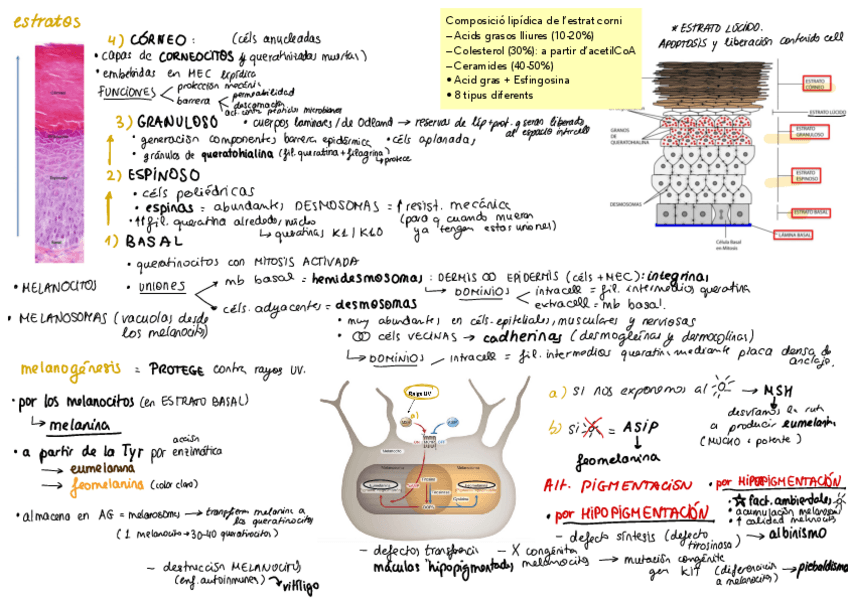 estratos
4) CÓRNEO: (céls anucleadas
• capas de CORNEOCITOS y queratinizadas muertas)
• embebidas en MEC lipídica
FUNCIONES
protección mecánica
barrera
permeabilidad
descamación
act. contra
microbianos
3) GRANULOSO
• cuerpos lamines/de Odland → reservas de lip + prot. q seran liberado
al espacio intercell
• generación componentes barrera epidérmica
• céls aplanadas
• gránulos de queratohialina (fil. queratina + filagrina)
protece
2) ESPINOSO
• céls poliédricas
• espinas = abundantes DESMOSOMAS = ↑ resist. mecánica
(para q cuando mueran
ya tengan estas uniones)
• ↑↑ fil. queratina alrededor núcleo
↳ queratinas K1/K10
1) BASAL
• queratinocitos con MITOSIS ACTIVADA
• uniones
mb basal = hemidesmosomas: DERMIS ∞ EPIDERMIS (céls + MEC): integrinas
↳ DOMINIOS
intracell = fil. intermedios queratina
extracell = mb basal.
céls. adyacentes = desmosomas
• muy abundantes en céls. epiteliales, musculares y nerviosas
• céls VECINAS → cadherinas (desmogleinas y desmocolinas)
↳ DOMINIOS / intracell = fil. intermedios queratina mediante placa densa de
anclaje.
• MELANOCITOS
• MELANOSOMAS (vacuolas desde
los melanocitos)
Composició lipídica de l'estrat corni
– Acids grasos lliures (10-20%)
– Colesterol (30%): a partir d'acetilCoA
– Ceramides (40-50%)
• Acid gras + Esfingosina
• 8 tipus diferents
* ESTRATO LÚCIDO.
APOPTOSIS y liberación contenido cell
ESTRATO CORNEO
ESTRATO LÚCIDO
GRANOS DE QUERATOHIALINA
ESTRATO GRANULOSO
ESTRATO ESPINOSO
DESMOSOMAS
ESTRATO BASAL
LÁMINA BASAL
Célula Basal
en Mitosis
melanogénesis = PROTEGE contra rayos UV.
• por los melanocitos (en ESTRATO BASAL)
↳ melanina
• a partir de la Tyr por acción enzimática
→ eumelanina
→ feomelanina (color claro)
• almacena en AG = melanosomas → transfieren melanina a
los queratinocitos
(1 melanocito → 30-40 queratinocitos)
Rajos UV
a)
a) si nos exponemos al → MSH
desviamos la ruta
a producir eumelanina
(MUCHO + potente)
b) si = ASIP
feomelanina
Alt. PIGMENTACIÓN
• por HIPERPIGMENTACIÓN
★ fact. ambientales
• acumulación melanosomas
• ↑ calidad melanocitos
• por HIPOPIGMENTACIÓN
– defecto síntesis (defecto
tirosinasa) → albinismo
– defectos transferencia
máculas hipopigmentadas
– X congénita
melanocitos → mutación congénita
gen KIT (diferenciación
a melanocitos) → piebaldismo
– destrucción MELANOCITOS
(enf. autoinmunes) → vitíligo